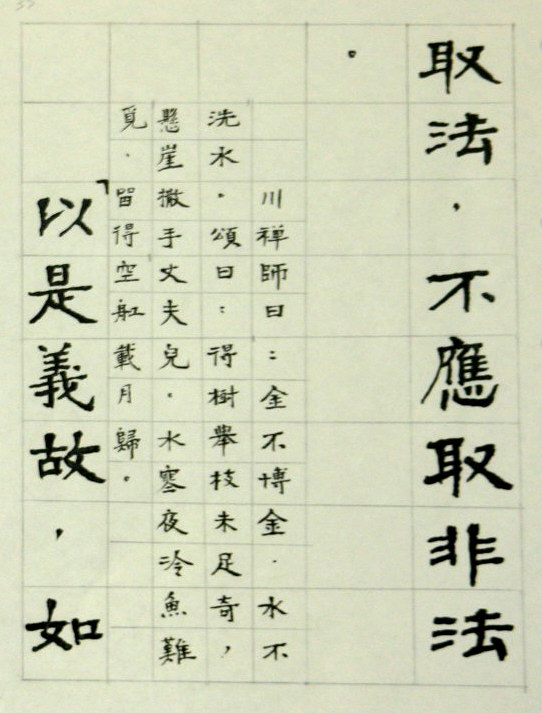 取法，不應取非法
。
川禪師曰：金不博金．水不
洗水。頌曰：得樹攀枝未足奇，
懸崖撒手丈夫兒。水寒夜冷魚難
覓．留得空舡載月歸。
「以是義故，如